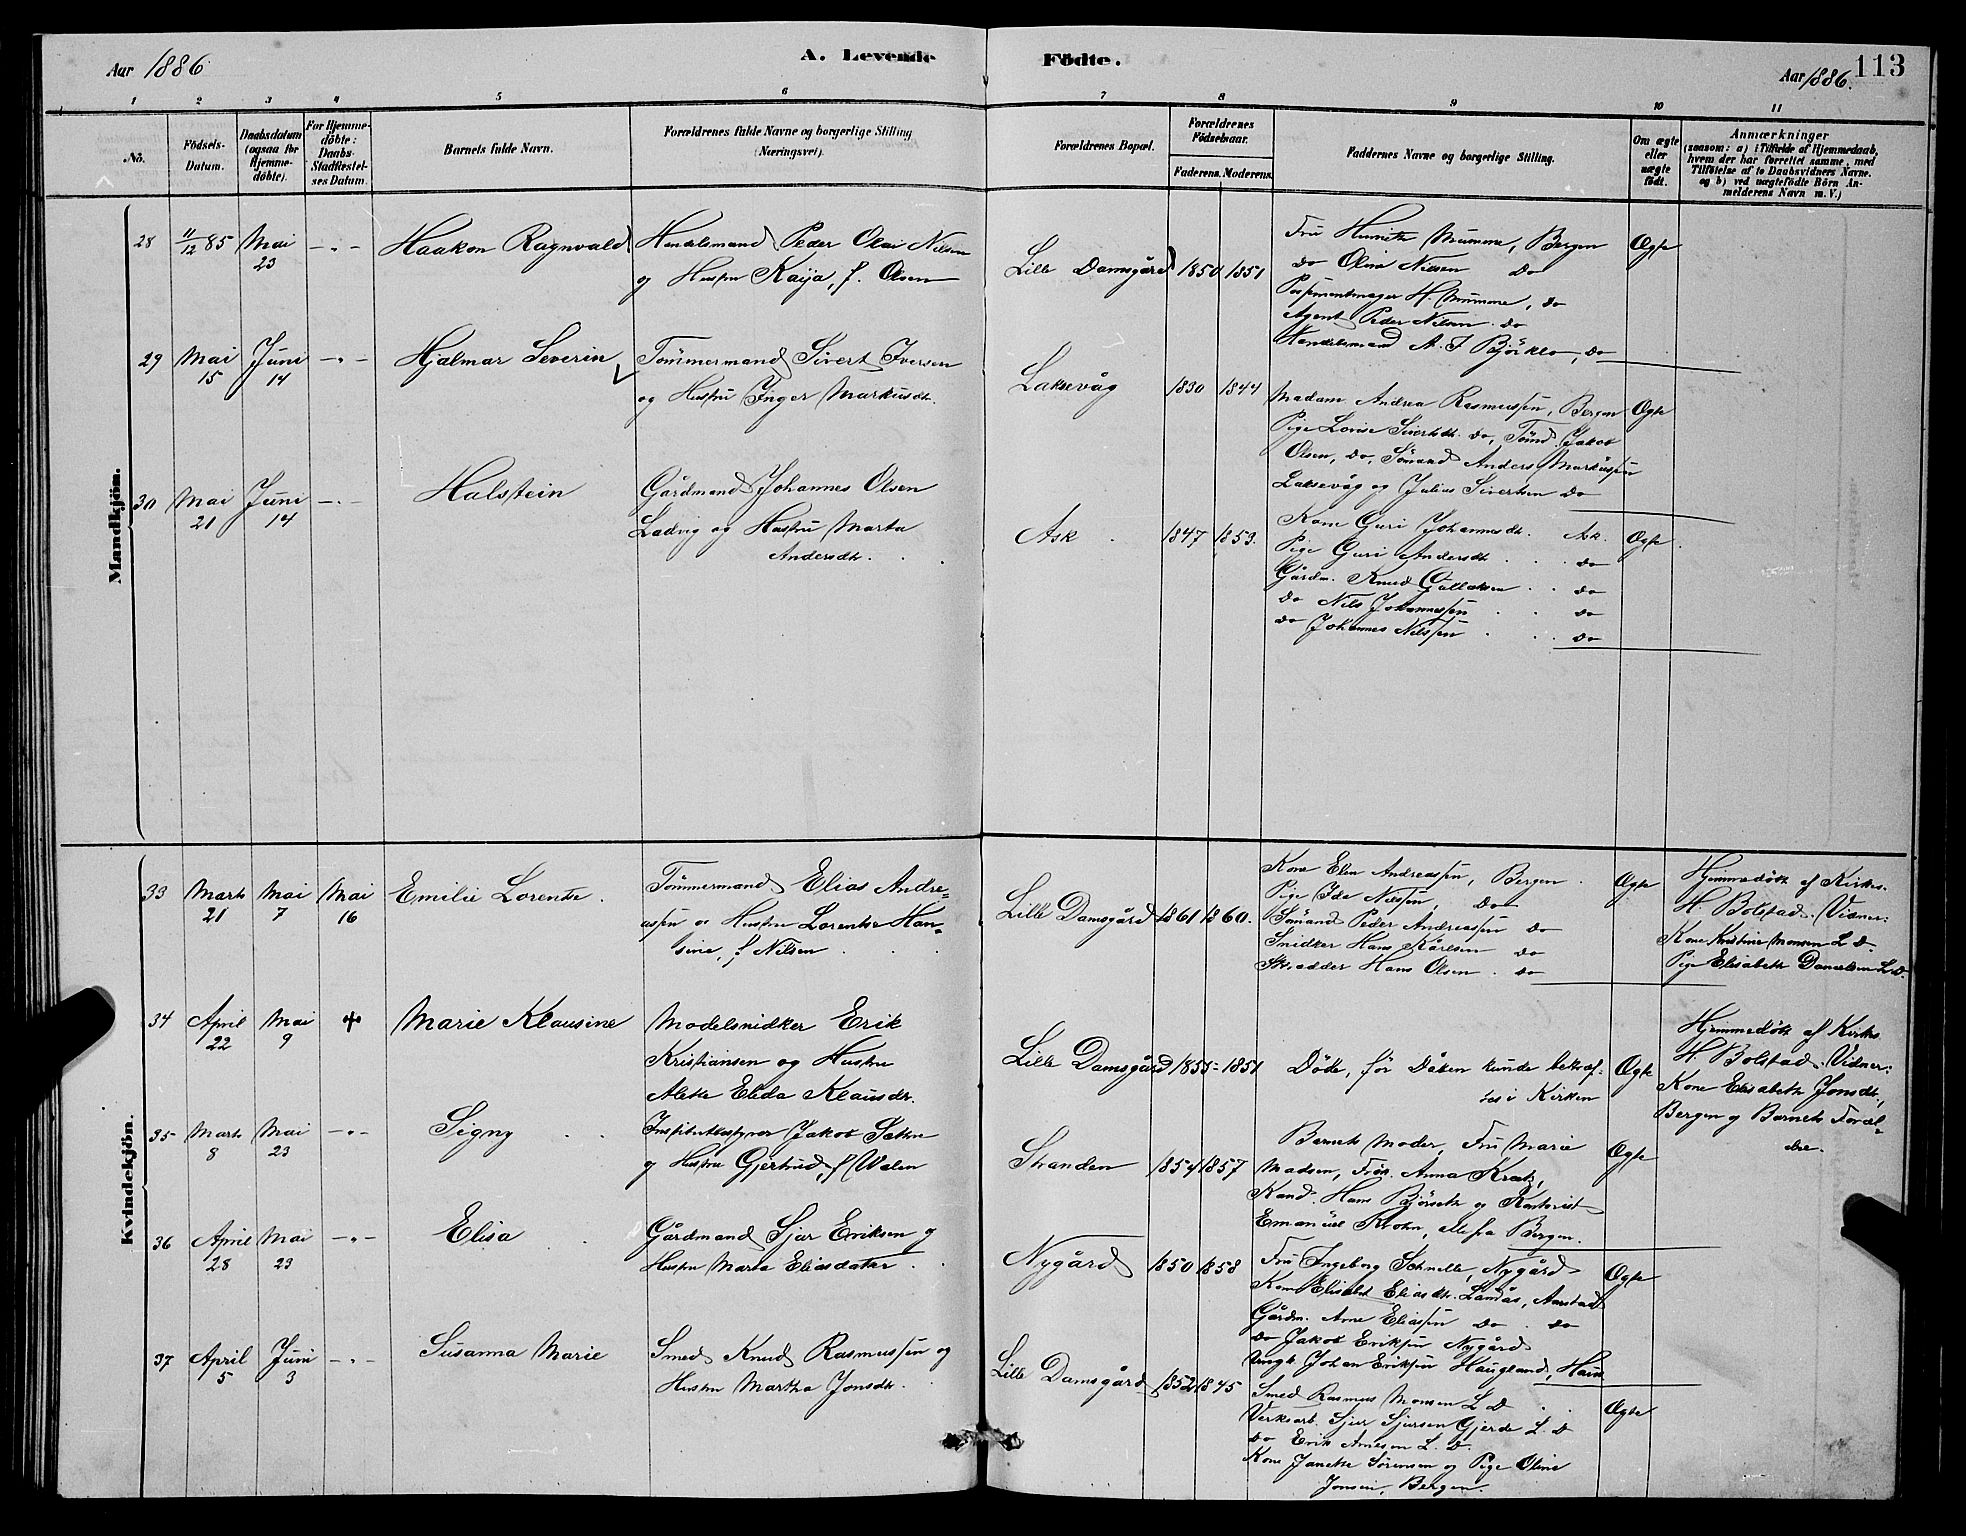 Aar 1886
A. Levende
Födte.
Aar 1886.
113
1 2 3 4 5 6 7 8 9 10 11
No.
Födsels-
Datum.
Daabsdatum
(ogsaa for
Hjemme-
döbte).
For Hjemme-
döbte:
Daabs-
Stadfæstel-
ses Datum.
Barnets fulde Navn.
Forældrenes fulde Navne og borgerlige Stilling
(Næringsvei).
Forældrenes Bopæl.
Forældrenes
Födselsaar.
Faderens. Moderens.
Faddernes Navne og borgerlige Stilling.
Om ægte
eller
uægte
födt.
Anmærkninger
(saasom: a) i Tilfælde af Hjemmedaab,
hvem der har forrettet samme, med
Tilföielse af to Daabsvidners Navne.
og b) ved uægtefödte Börn An-
melderens Navn m. V.)
Mandkjön.
28 11/12 85 Mai 23 - " - Haakon Ragnvald
Handelsmand Peder Olai Nilsen
og Hustru Kaija, f. Olsen
Lille Damsgård 1850 1851
Fru Henriette Mumme, Bergen
do Olivia Nilsen do
Possementmager H. Mumme, do
Agent Peder Nilsen do
Handelsmand A. J. Björklo, do
Ægte
29 Mai 15 Juni 14 - " - Hjalmar Severin
Tömmermand Sivert Iversen
og Hustru Inger Markusdt.
Laksevåg 1830 1844
Madam Andrea Rasmussen, Bergen
Pige Lovise Sivertsdt. do, Tömd. Jakob
Olsen, do, Sömand Anders Markussen
Laksevåg og Julius Sivertsen do
Ægte
30 Mai 21 Juni 14 - " - Halstein
Gårdmand Johannes Olsen
Ladvig og Hustru Marta
Andersdt.
Ask 1847 1853.
Kone Guri Johannesdt. Ask.
Pige Guri Andersdt. do
Gårdm. Knud Gullaksen do
do Nils Johannessen do
do Johannes Nilssen do
Ægte.
Kvindekjön.
33 Marts 21 Mai 7 Mai 16 Emilie Lorentse.
Tömmermand Elias Andre-
assen og Hustru Lorentse Han-
sine, f. Nilsen
Lille Damsgård 1861 1860.
Kone Elen Andreassen, Bergen
Pige Ida Nilssen, do
Sömand Peder Andreassen do
Snidker Hans Karlsen do
Skrædder Hans Olsen do
Ægte
Hjemmedöbt af Kirkes.
H. Bolstad. Vidner:
Kone Kristine Monsen L D.
Pige Elisabeth Danielsen L. D.
34 April 22 Mai 9 + Marie Klausine
Modelsnidker Erik
Kristiansen og Hustru
Alette Elida Klausdt.
Lille Damsgård 1855 - 1851
Döde, för Dåben kunde bekræf-
tes i Kirken
Ægte
Hjemmedöbt af Kirkes.
H. Bolstad. Vidner:
Kone Elisabeth Jonsdt,
Bergen og Barnets Foræl-
dre.
35 Marts 8 Mai 23 - " - Signy
Institutbestyrer Jakob Sethne
og Hustru Gjertrud, f. Walen
Stranden 1854 1857
Barnets Moder, Fru Marie
Madsen, Frök. Anna Krætz,
Kand. Hans Björseth og Kontorist
Emanuel Krohn, alle fra Bergen.
Ægte
36 April 28 Mai 23 - " - Elisa
Gårdmand Sjur Eriksen og
Hustru Marta Eliasdatter
Nygård 1850 1858
Fru Ingeborg Schnelle, Nygård
Kone Elisabet Eliasdt. Landås, Aarstad
Gårdm. Arne Eliassen do do
do Jakob Eriksen Nygård
Ungk. Johan Eriksen Haugland, Haus
Ægte
37 April 5 Juni 3 - " - Susanna Marie
Smed Knud Rasmussen og
Hustru Martha Jonsdt.
Lille Damsgård 1852 1845
Smed Rasmus Monsen L D
Verksarb. Sjur Sjursen Gjerde L. D
do Erik Arnesen L. D.
Kone Janette Sörensen og Pige Oline
Jonsen, Bergen.
Ægte